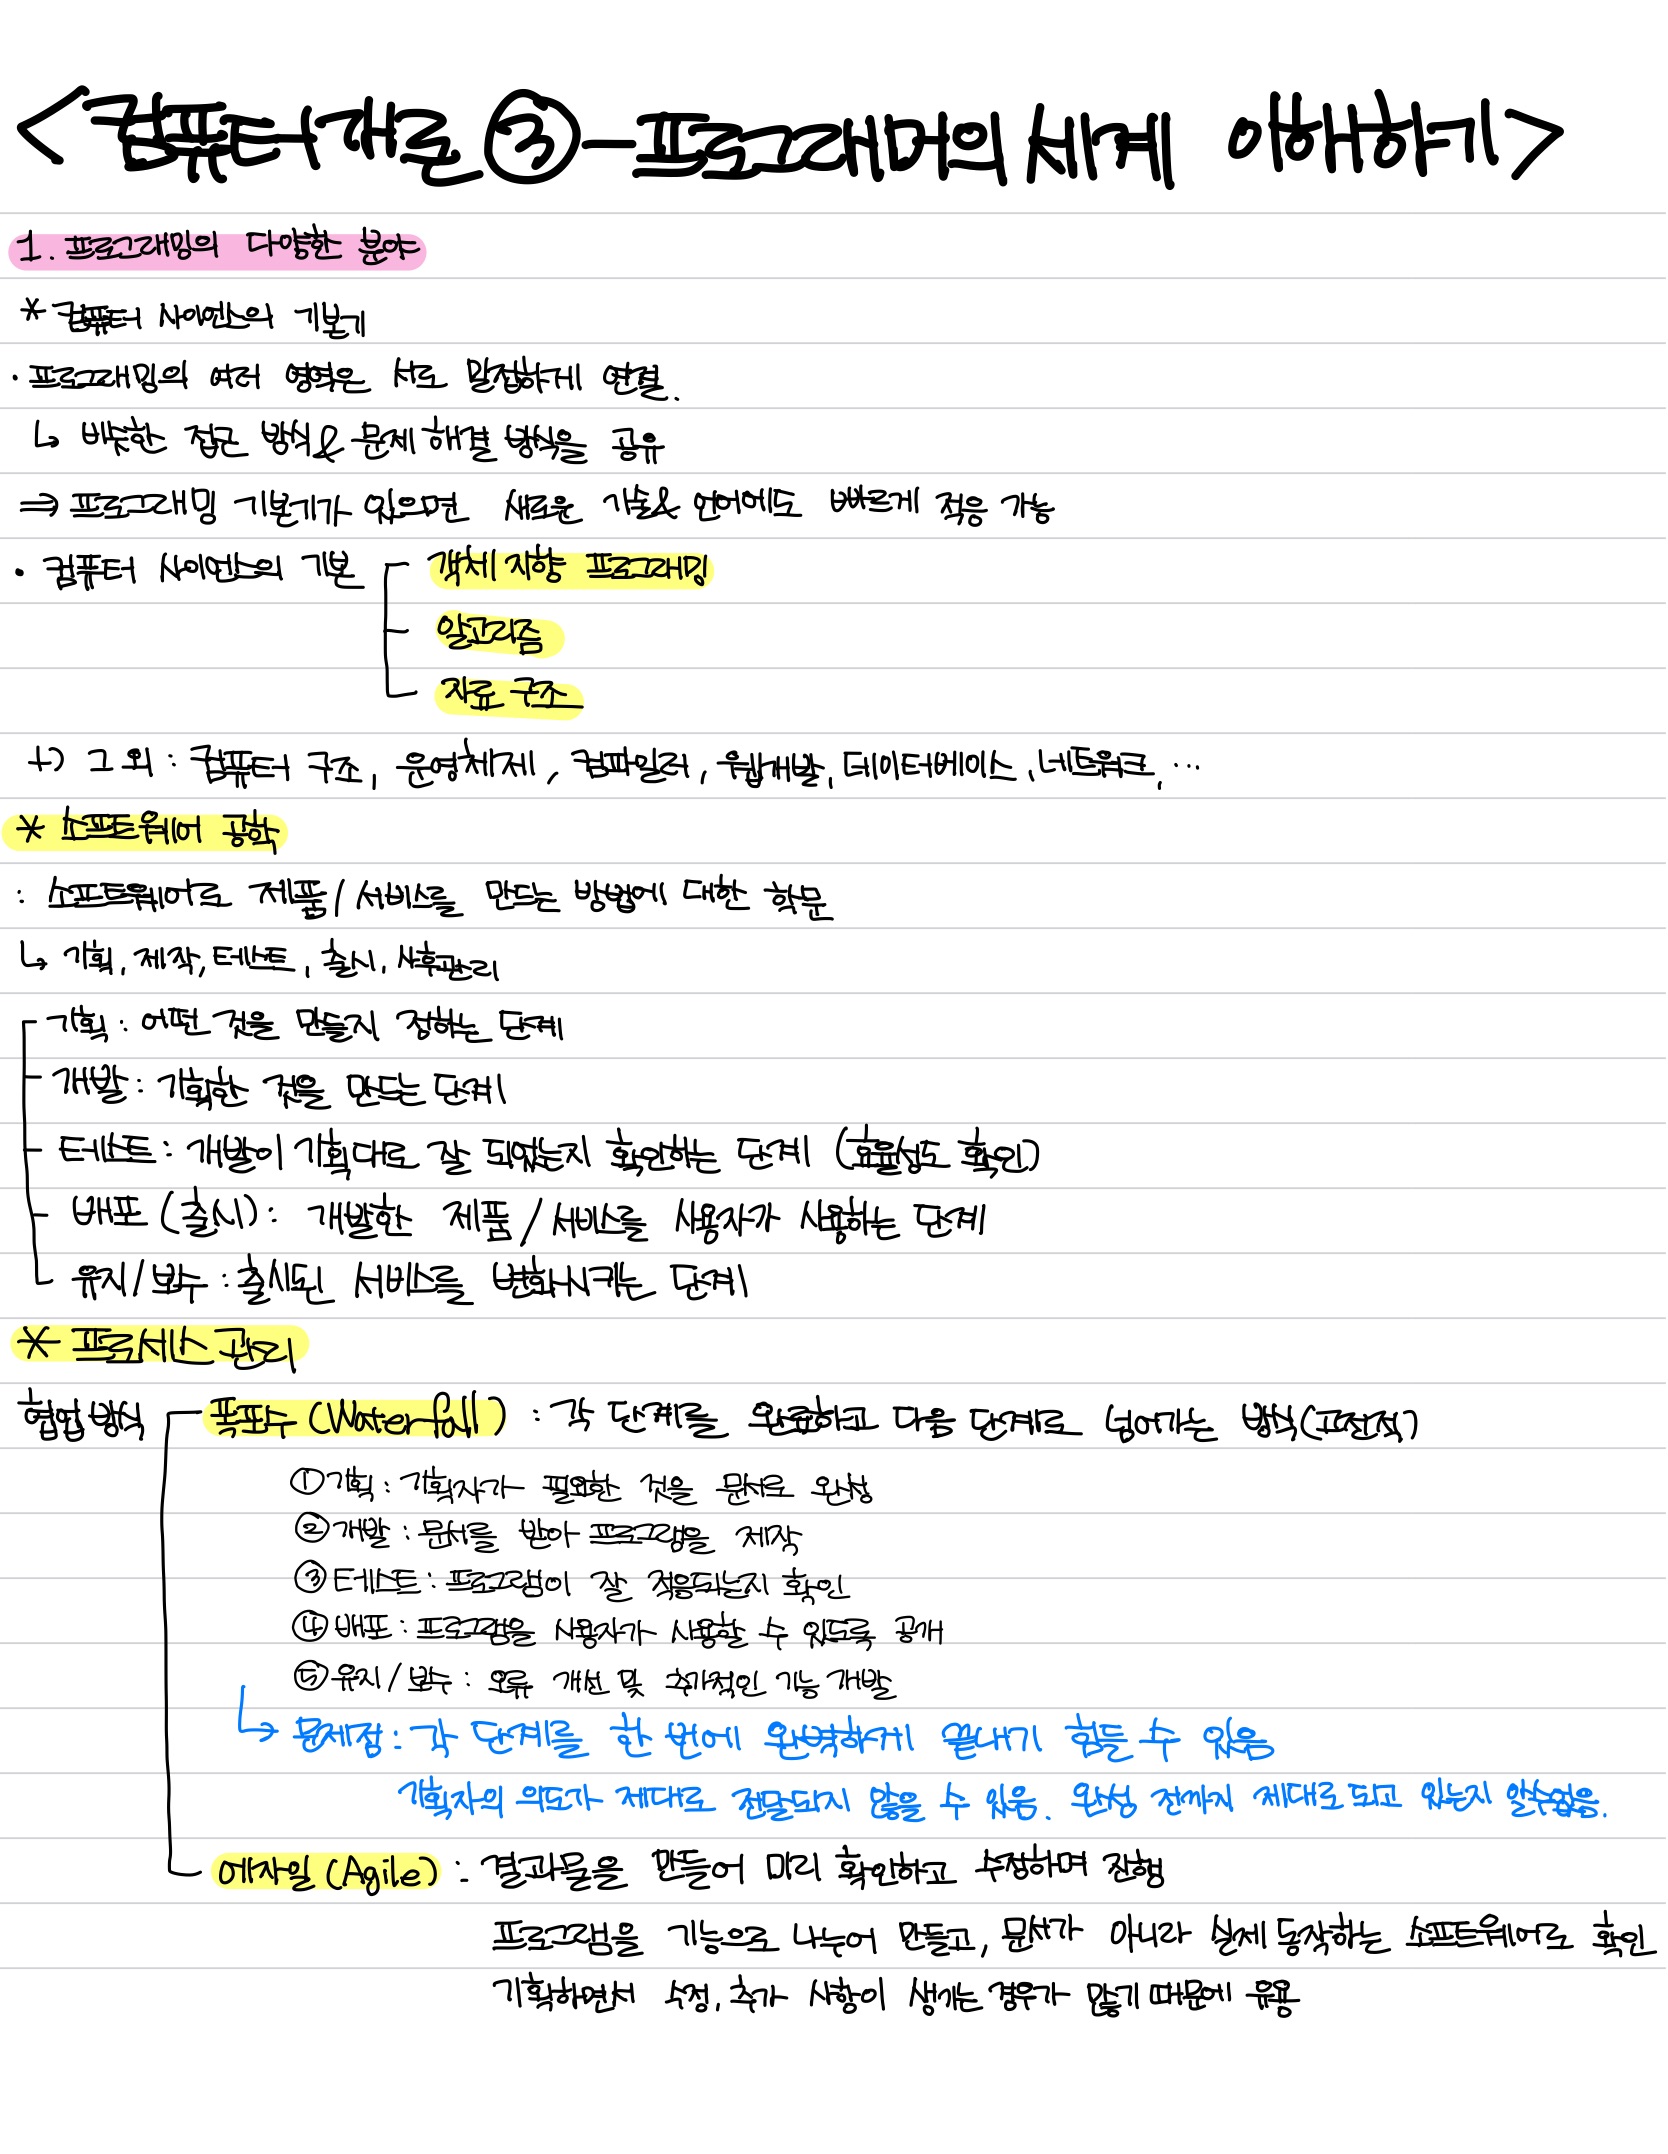 <컴퓨터개론 ③-프로그래머의 세계 이해하기>
1. 프로그래밍의 다양한 분야
* 컴퓨터 사이언스의 기본기
· 프로그래밍의 여러 영역은 서로 밀접하게 연결.
↳ 비슷한 접근 방식 & 문제 해결 방식을 공유
⇒ 프로그래밍 기본기가 있으면 새로운 기술 & 언어에도 빠르게 적응 가능
· 컴퓨터 사이언스의 기본 객체 지향 프로그래밍
알고리즘
자료 구조
+) 그 외 : 컴퓨터 구조, 운영체제, 컴파일러, 웹개발, 데이터베이스, 네트워크, …
* 소프트웨어 공학
: 소프트웨어로 제품/서비스를 만드는 방법에 대한 학문
↳ 기획, 제작, 테스트, 출시, 사후관리
기획 : 어떤 것을 만들지 정하는 단계
개발 : 기획한 것을 만드는 단계
테스트 : 개발이 기획대로 잘 되었는지 확인하는 단계 (효율성도 확인)
배포 (출시) : 개발한 제품/서비스를 사용자가 사용하는 단계
유지/보수 : 출시된 서비스를 변화시키는 단계
* 프로세스 관리
협업 방식 폭포수 (Waterfall) : 각 단계를 완료하고 다음 단계로 넘어가는 방식(고전적)
① 기획 : 기획자가 필요한 것을 문서로 완성
② 개발 : 문서를 받아 프로그램을 제작
③ 테스트 : 프로그램이 잘 적용되는지 확인
④ 배포 : 프로그램을 사용자가 사용할 수 있도록 공개
⑤ 유지/보수 : 오류 개선 및 추가적인 기능 개발
↳ 문제점 : 각 단계를 한 번에 완벽하게 끝내기 힘들 수 있음
기획자의 의도가 제대로 전달되지 않을 수 있음. 완성 전까지 제대로 되고 있는지 알 수 없음.
에자일 (Agile) : 결과물을 만들어 미리 확인하고 수정하며 진행
프로그램을 기능으로 나누어 만들고, 문서가 아니라 실제 동작하는 소프트웨어로 확인
기획하면서 수정, 추가 사항이 생기는 경우가 많기 때문에 유용